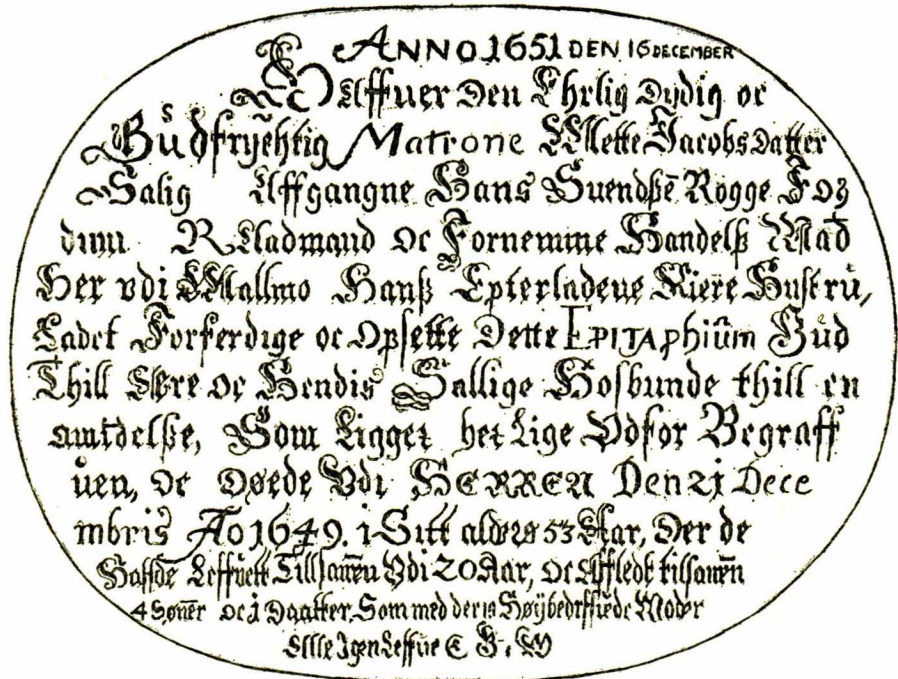 ANNO 1651 DEN 16 DECEMBER
Haffuer Den Ehrlig Dydig oc
Gůdfrÿchtig Matrone Mette Jacobs Datter
Salig Affgangne Hans Suendßē Rogge For
dum Raadmand Oc Fornemme Handelß Mād
Her vdi Mallmo Hanß Epterladene Kiere Hustru,
Ladet Forferdige oc Opsette Dette EPITAPhiům Gůd
Thill Ære Oc Hendis Sallige Hosbunde thill en
amindelße, Som Ligger her Lige Vdfor Begraff
uen, Oc Døede Vdi HERREN Den 21 Dece
mbris Ao 1649. i Sitt alders 53 Aar, Der de
Haffde Leffuett Tillsamēn Vdi 20 Aar, Oc Affledt tilsamēn
4 Sønēr oc 1 Daatter, Som med deris Høÿbedrffuede Moder
Alle Igen Leffue